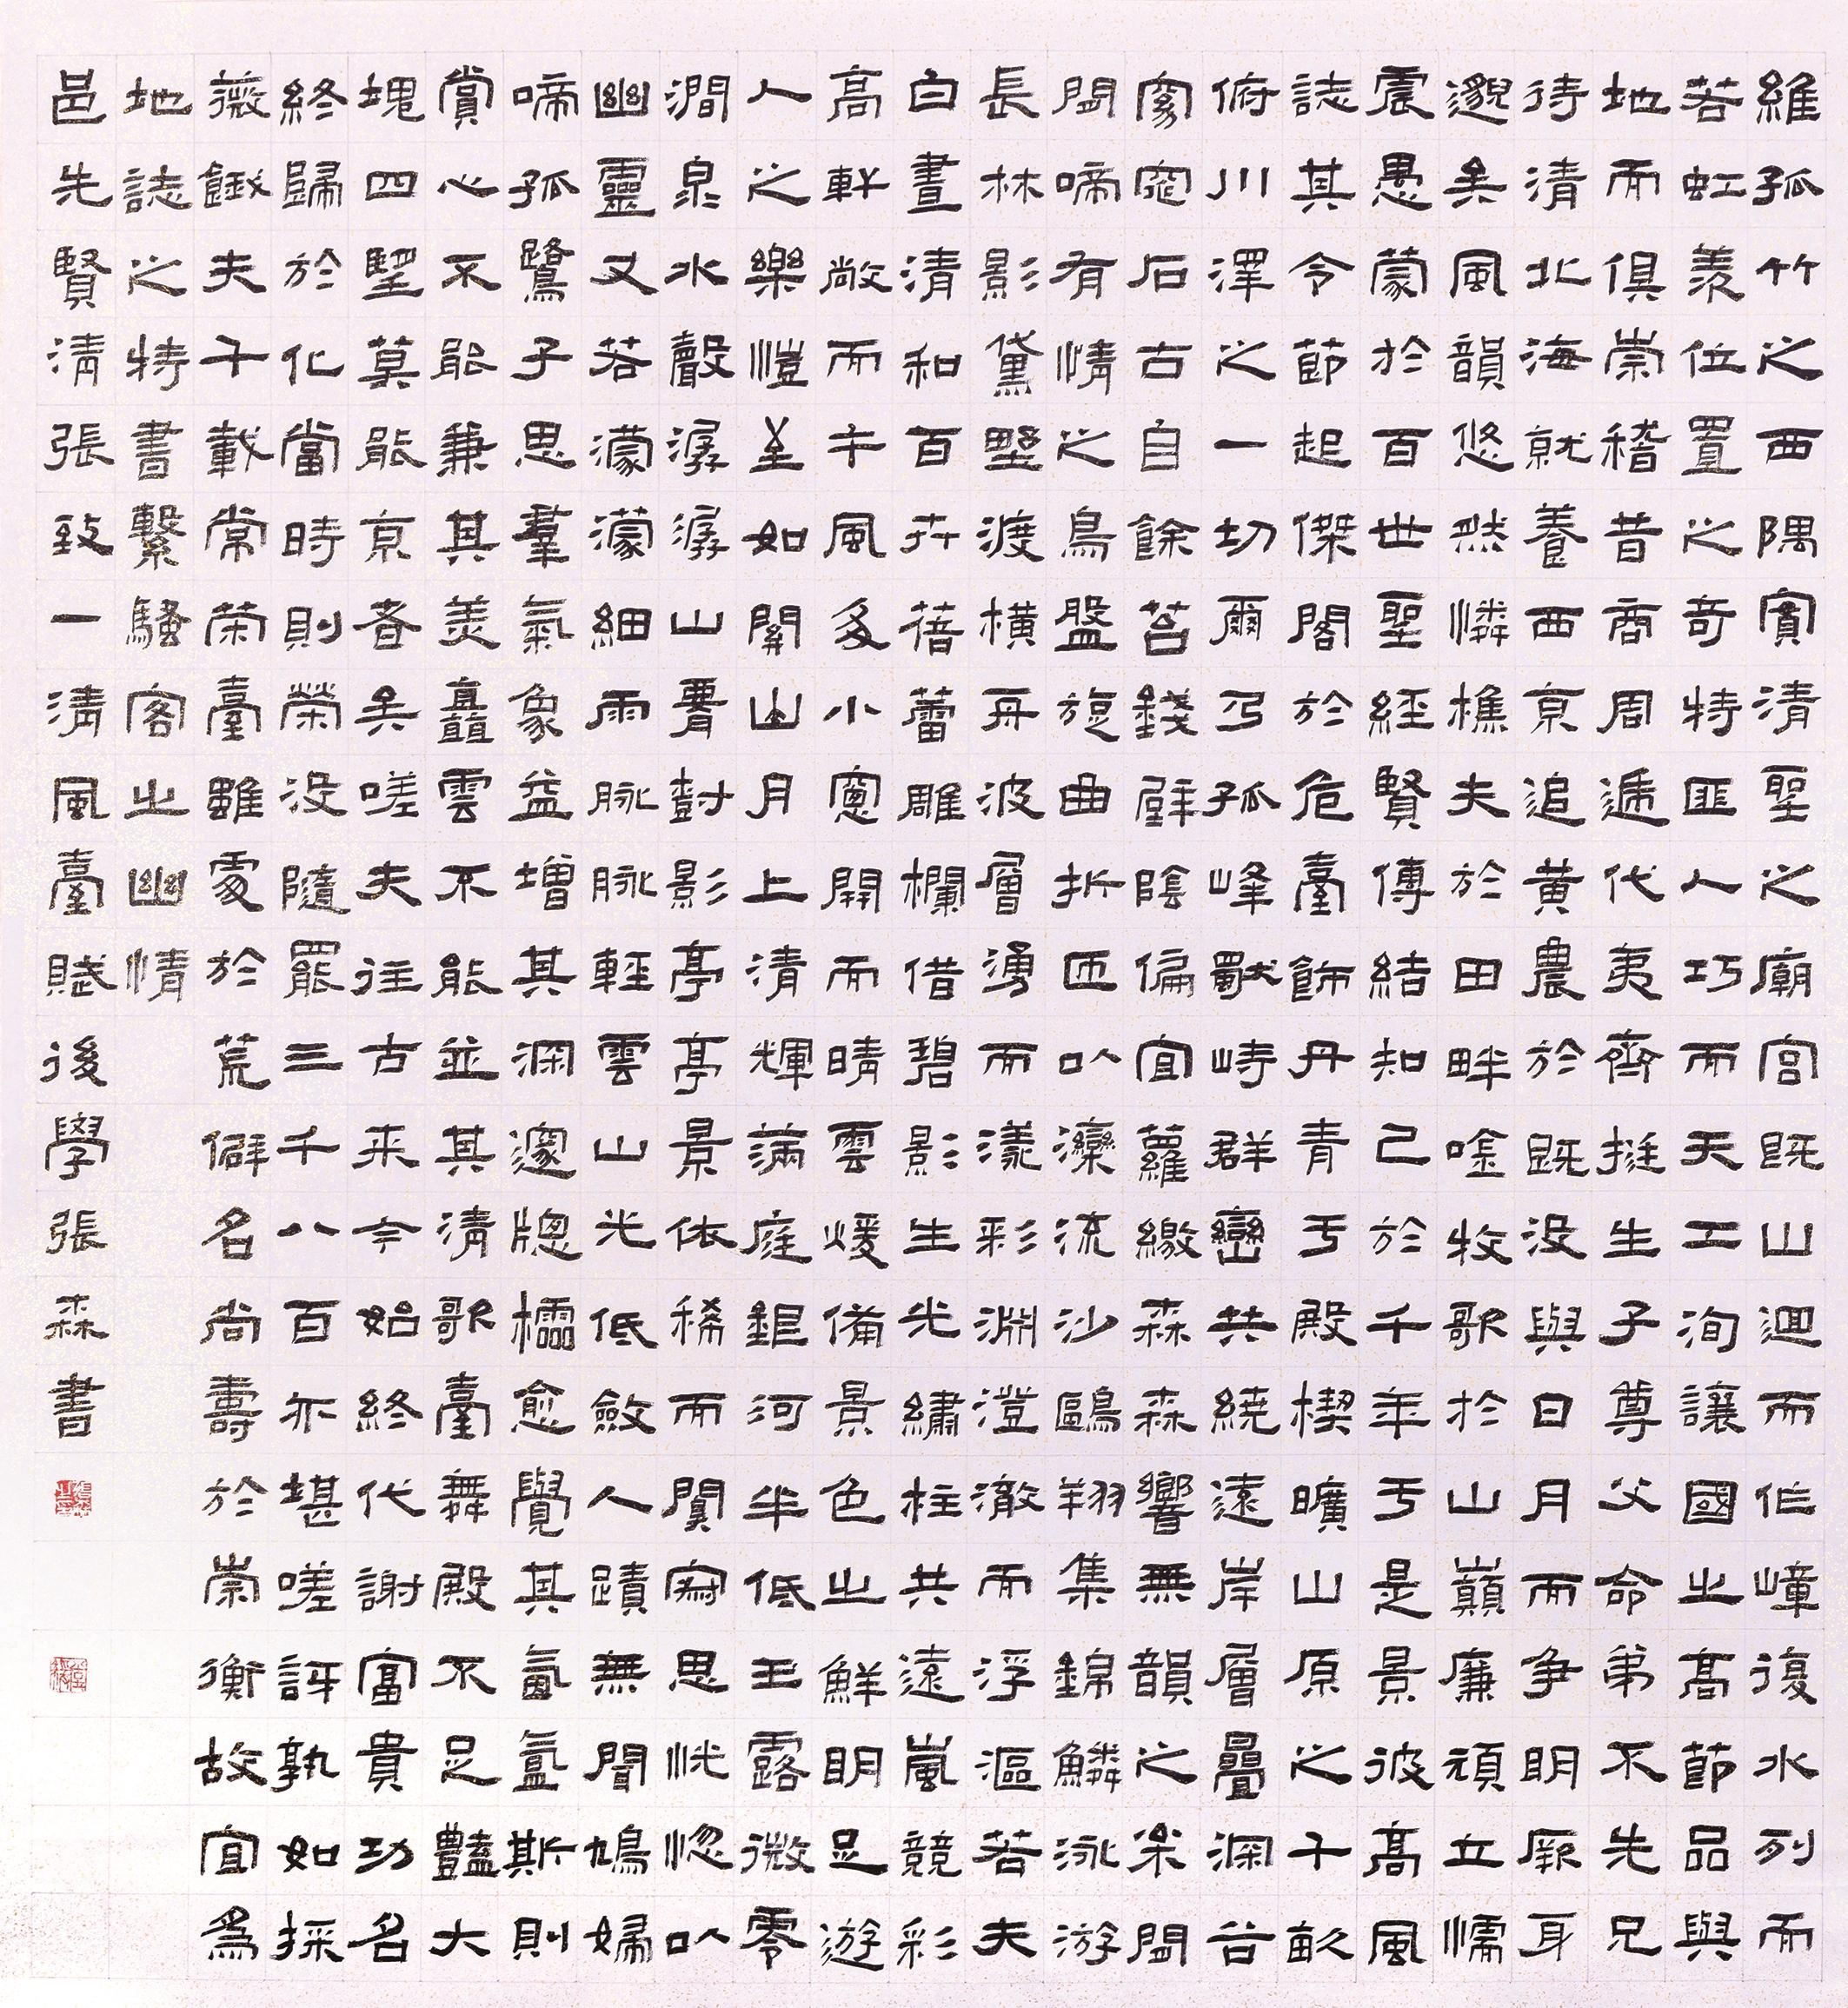 維孤竹之西隅實清聖之廟宮既山迴而作嶂復水列而
若虹羨位置之奇特匪人巧而天工洵讓國之高節品與
地而俱崇稽昔商周遞代夷齊挺生子尊父命弟不先兄
待清北海就養西京追黃農於既沒與日月而爭明厥身
邈矣風韻悠然憐樵夫於田畔唫牧歌於山巔廉頑立懦
震愚蒙於百世聖經賢傳結知己於千年于是景彼高風
誌其令節起傑閣於危臺飾丹青于殿楔曠山原之千畝
俯川澤之一切爾乃孤峰獻峙群巒共繞遠岸層疊深谷
窵窕石古自餘苔錢壁陰偏宜蘿繳森森響無韻之
啼有情之鳥盤旋曲折匝以濼流沙鷗翔集錦鱗泳游
長林影黛野渡橫舟波層湧而漾彩淵澄澈而浮漚若夫
白晝清和百卉蓓蕾雕欄借碧影生光繡柱共遠嵐競彩
高軒敞而午風多小窗開而晴雲煖備景色之鮮明足遊
人之樂愷至如關山月上清輝滿庭銀河半低玉露微零
澗泉水聲潺潺山霤對影亭亭景依稀而闃寂思恍惚以
幽靈又若濛濛細雨脉脉輕雲山光低斂人蹟無聞鳩婦
啼孤鷺子思羣氣象益增其深邃牕櫺愈覺其氤氳斯則
賞心不能兼其美矗雲不能並其清歌臺舞殿不足豔大
塊四望莫能京者矣嗟夫往古來今始終代謝富貴功名
終歸於化當時則榮沒隨罷三千八百亦堪嗟訝孰如採
薇餓夫千載常榮臺雖處於荒僻名尚壽於崇衡故宜為
地誌之特書繫騷客之幽情
邑先賢清張致一清風臺賦後學張森書